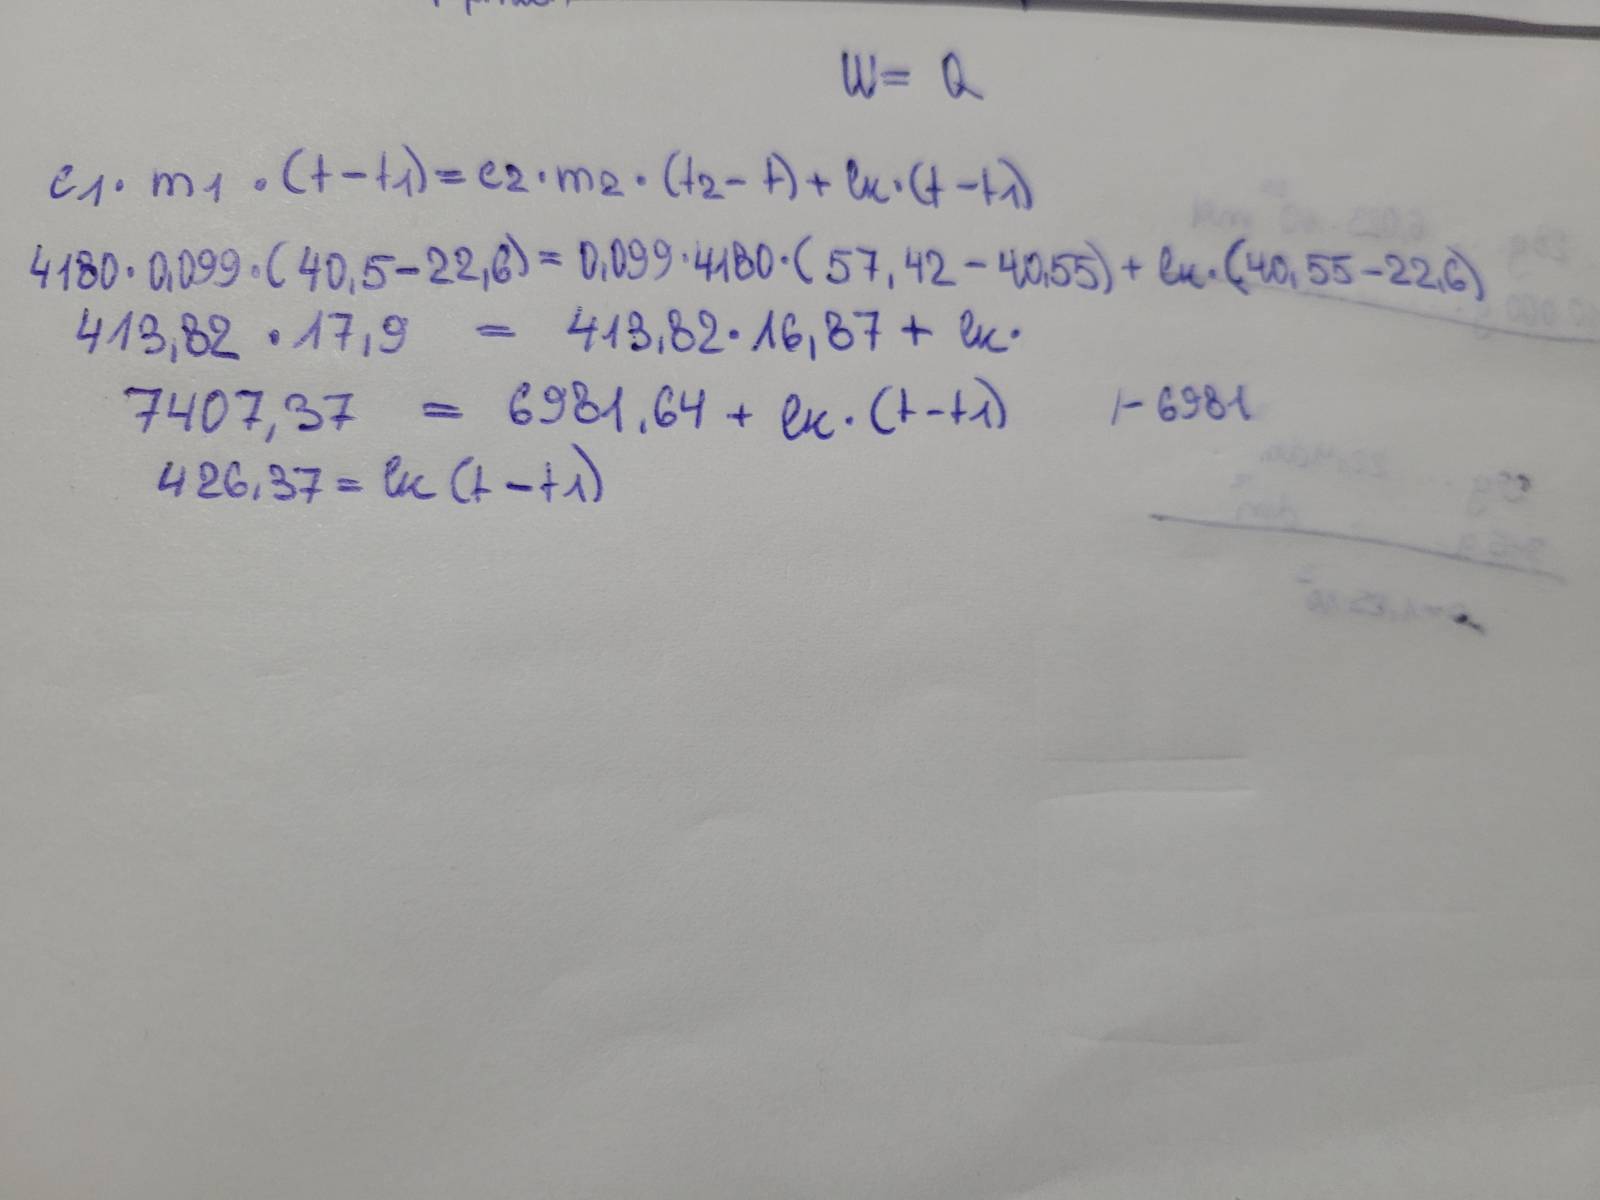 W = Q
c1 · m1 · (t-t1) = c2 · m2 · (t2-t) + lk · (t-t1)
4180 · 0,099 · (40,5-22,6) = 0,099 · 4180 · (57,42-40,55) + lk · (40,55-22,6)
413,82 · 17,9 = 413,82 · 16,87 + lk ·
7407,37 = 6981,64 + lk · (t-t1) /- 6981
426,37 = lk (t-t1)